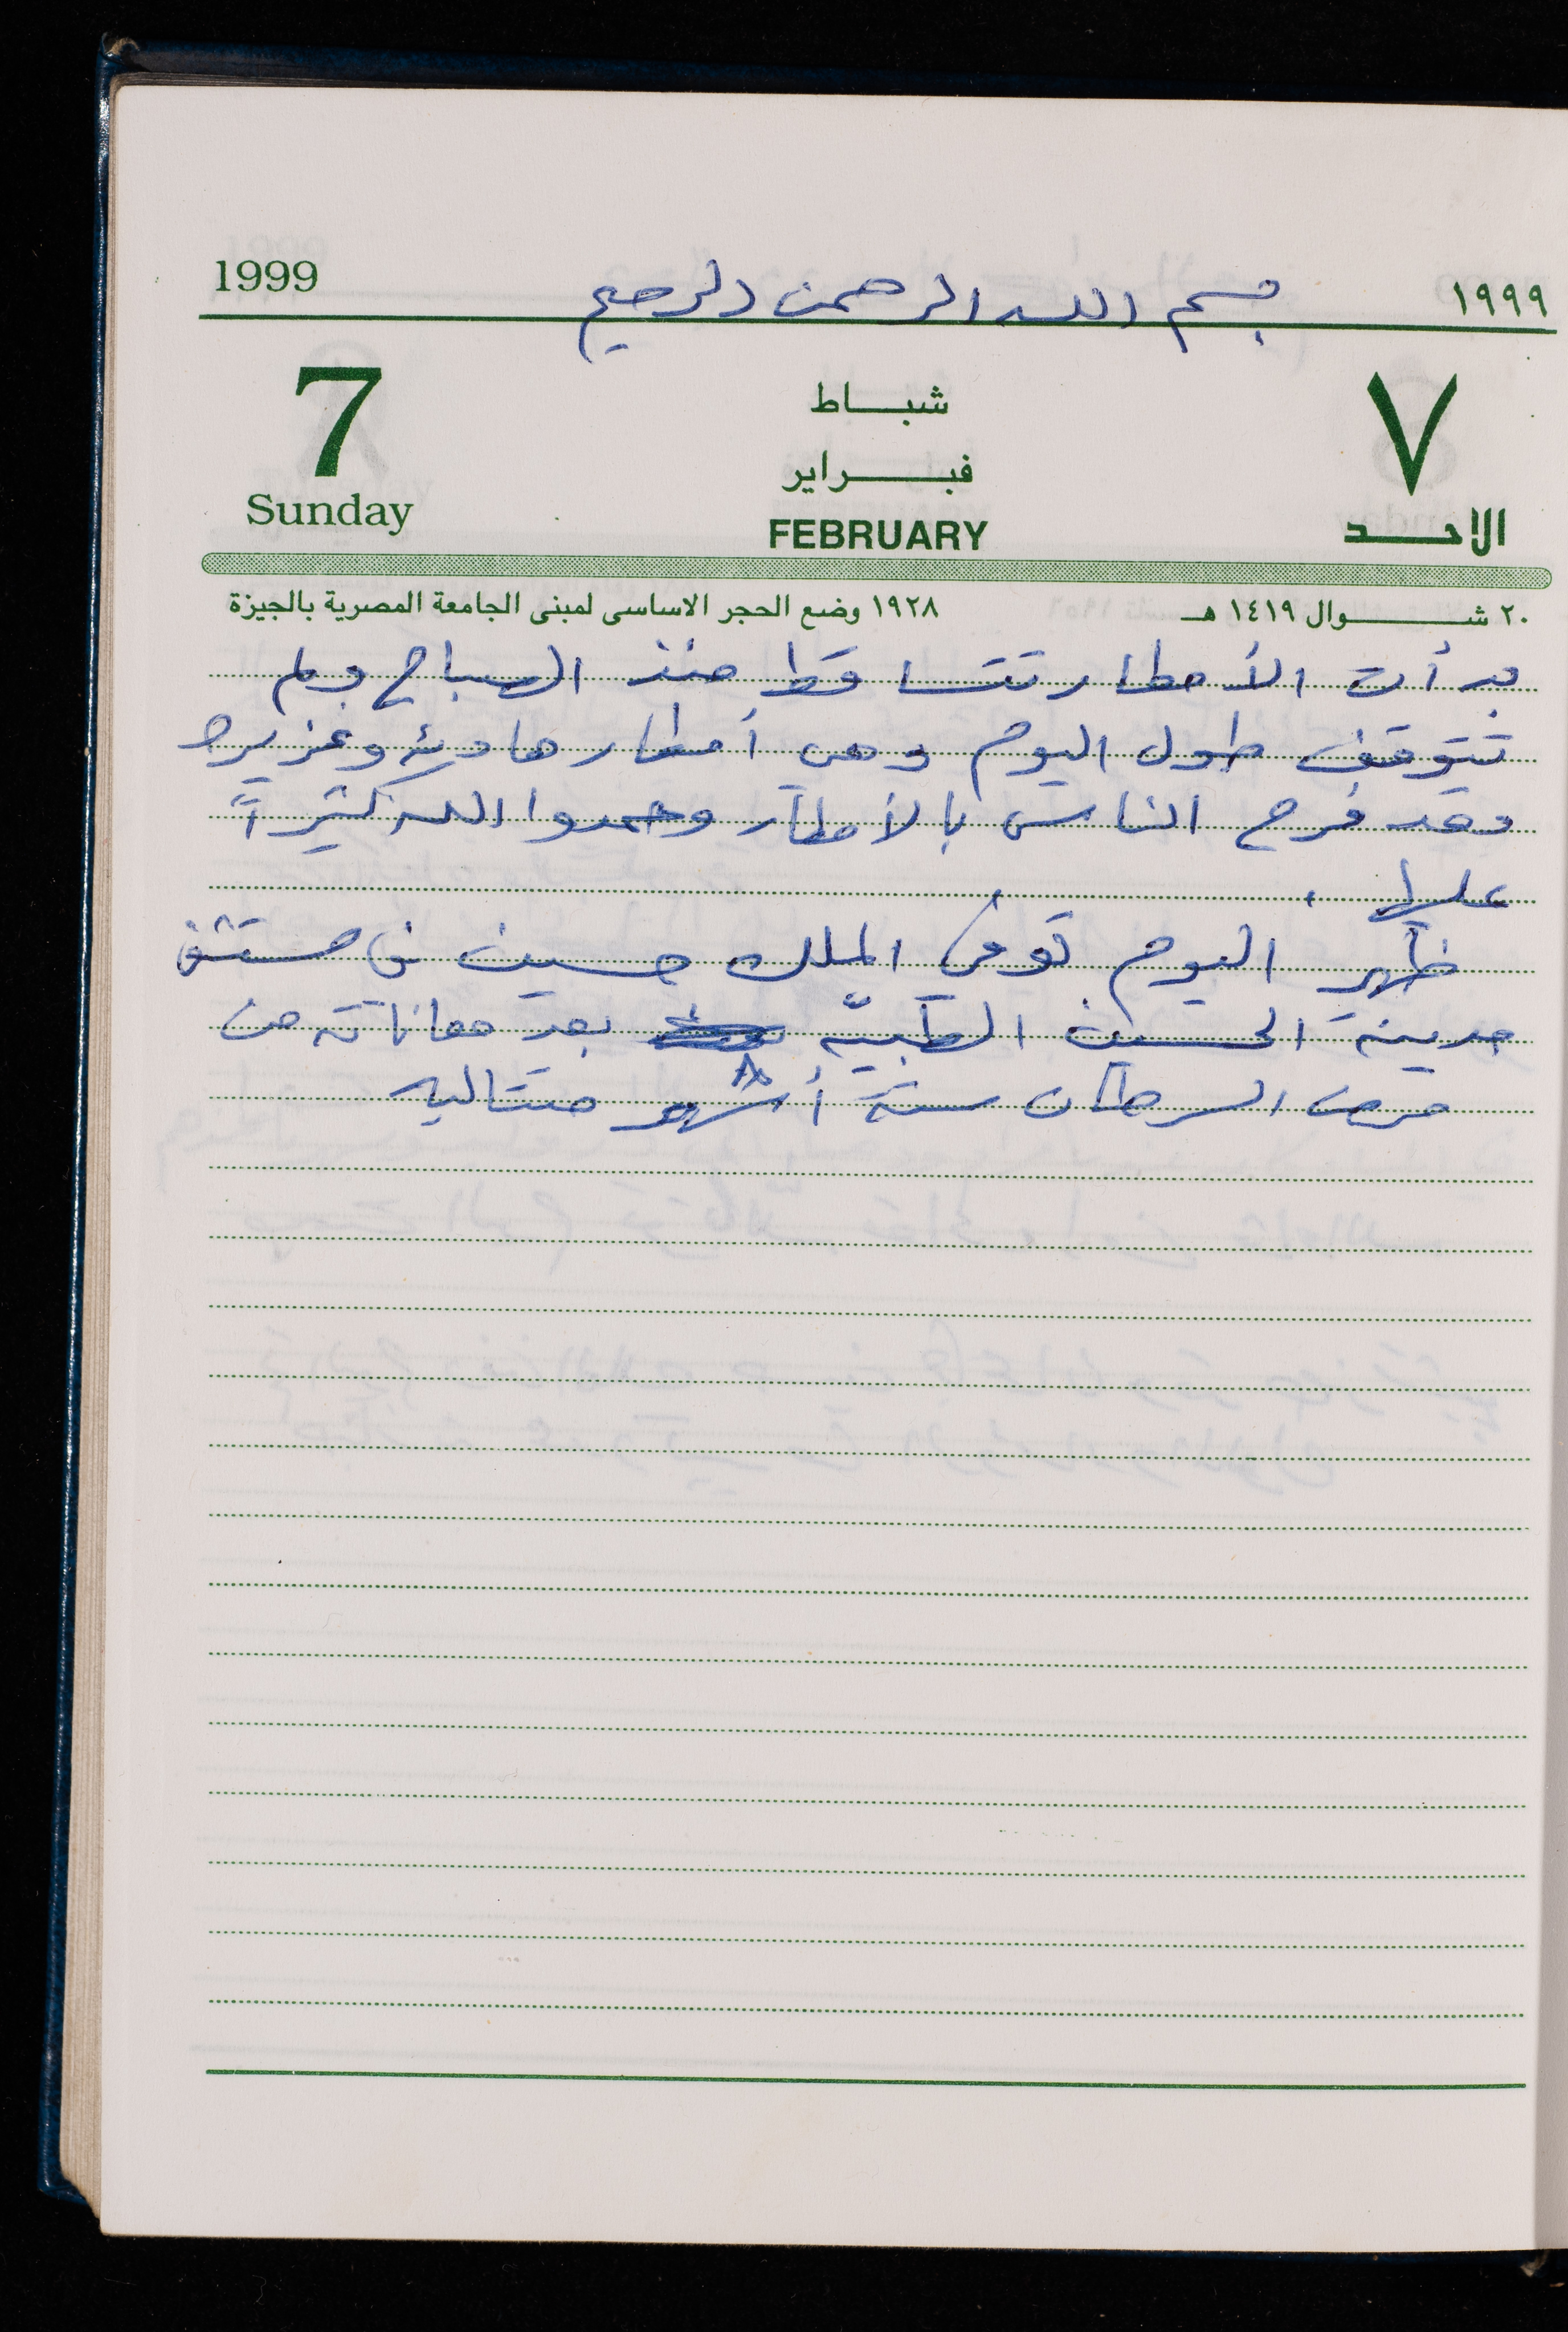 1999 بسم الله الرحمن الرحيم ١٩٩٩
7 شباط ٧
فبراير
Sunday FEBRUARY الاحد
٢٠ شوال ١٤١٩ هـ ١٩٢٨ وضع الحجر الاساسى لمبنى الجامعة المصرية بالجيزة
بدأت الأمطار تتساقط منذ الصباح ولم
تتوقف طول اليوم وهي أمطار هادئه وغزيره
وقد فرح الناس بالأمطار وحمدوا الله كثيراً
عليها .
ظهر اليوم توفى الملك حسين في مستشفى
مدينة الحسين الطبيّه بعد معاناته من
مرض السرطان ستة أشهر متتاليه